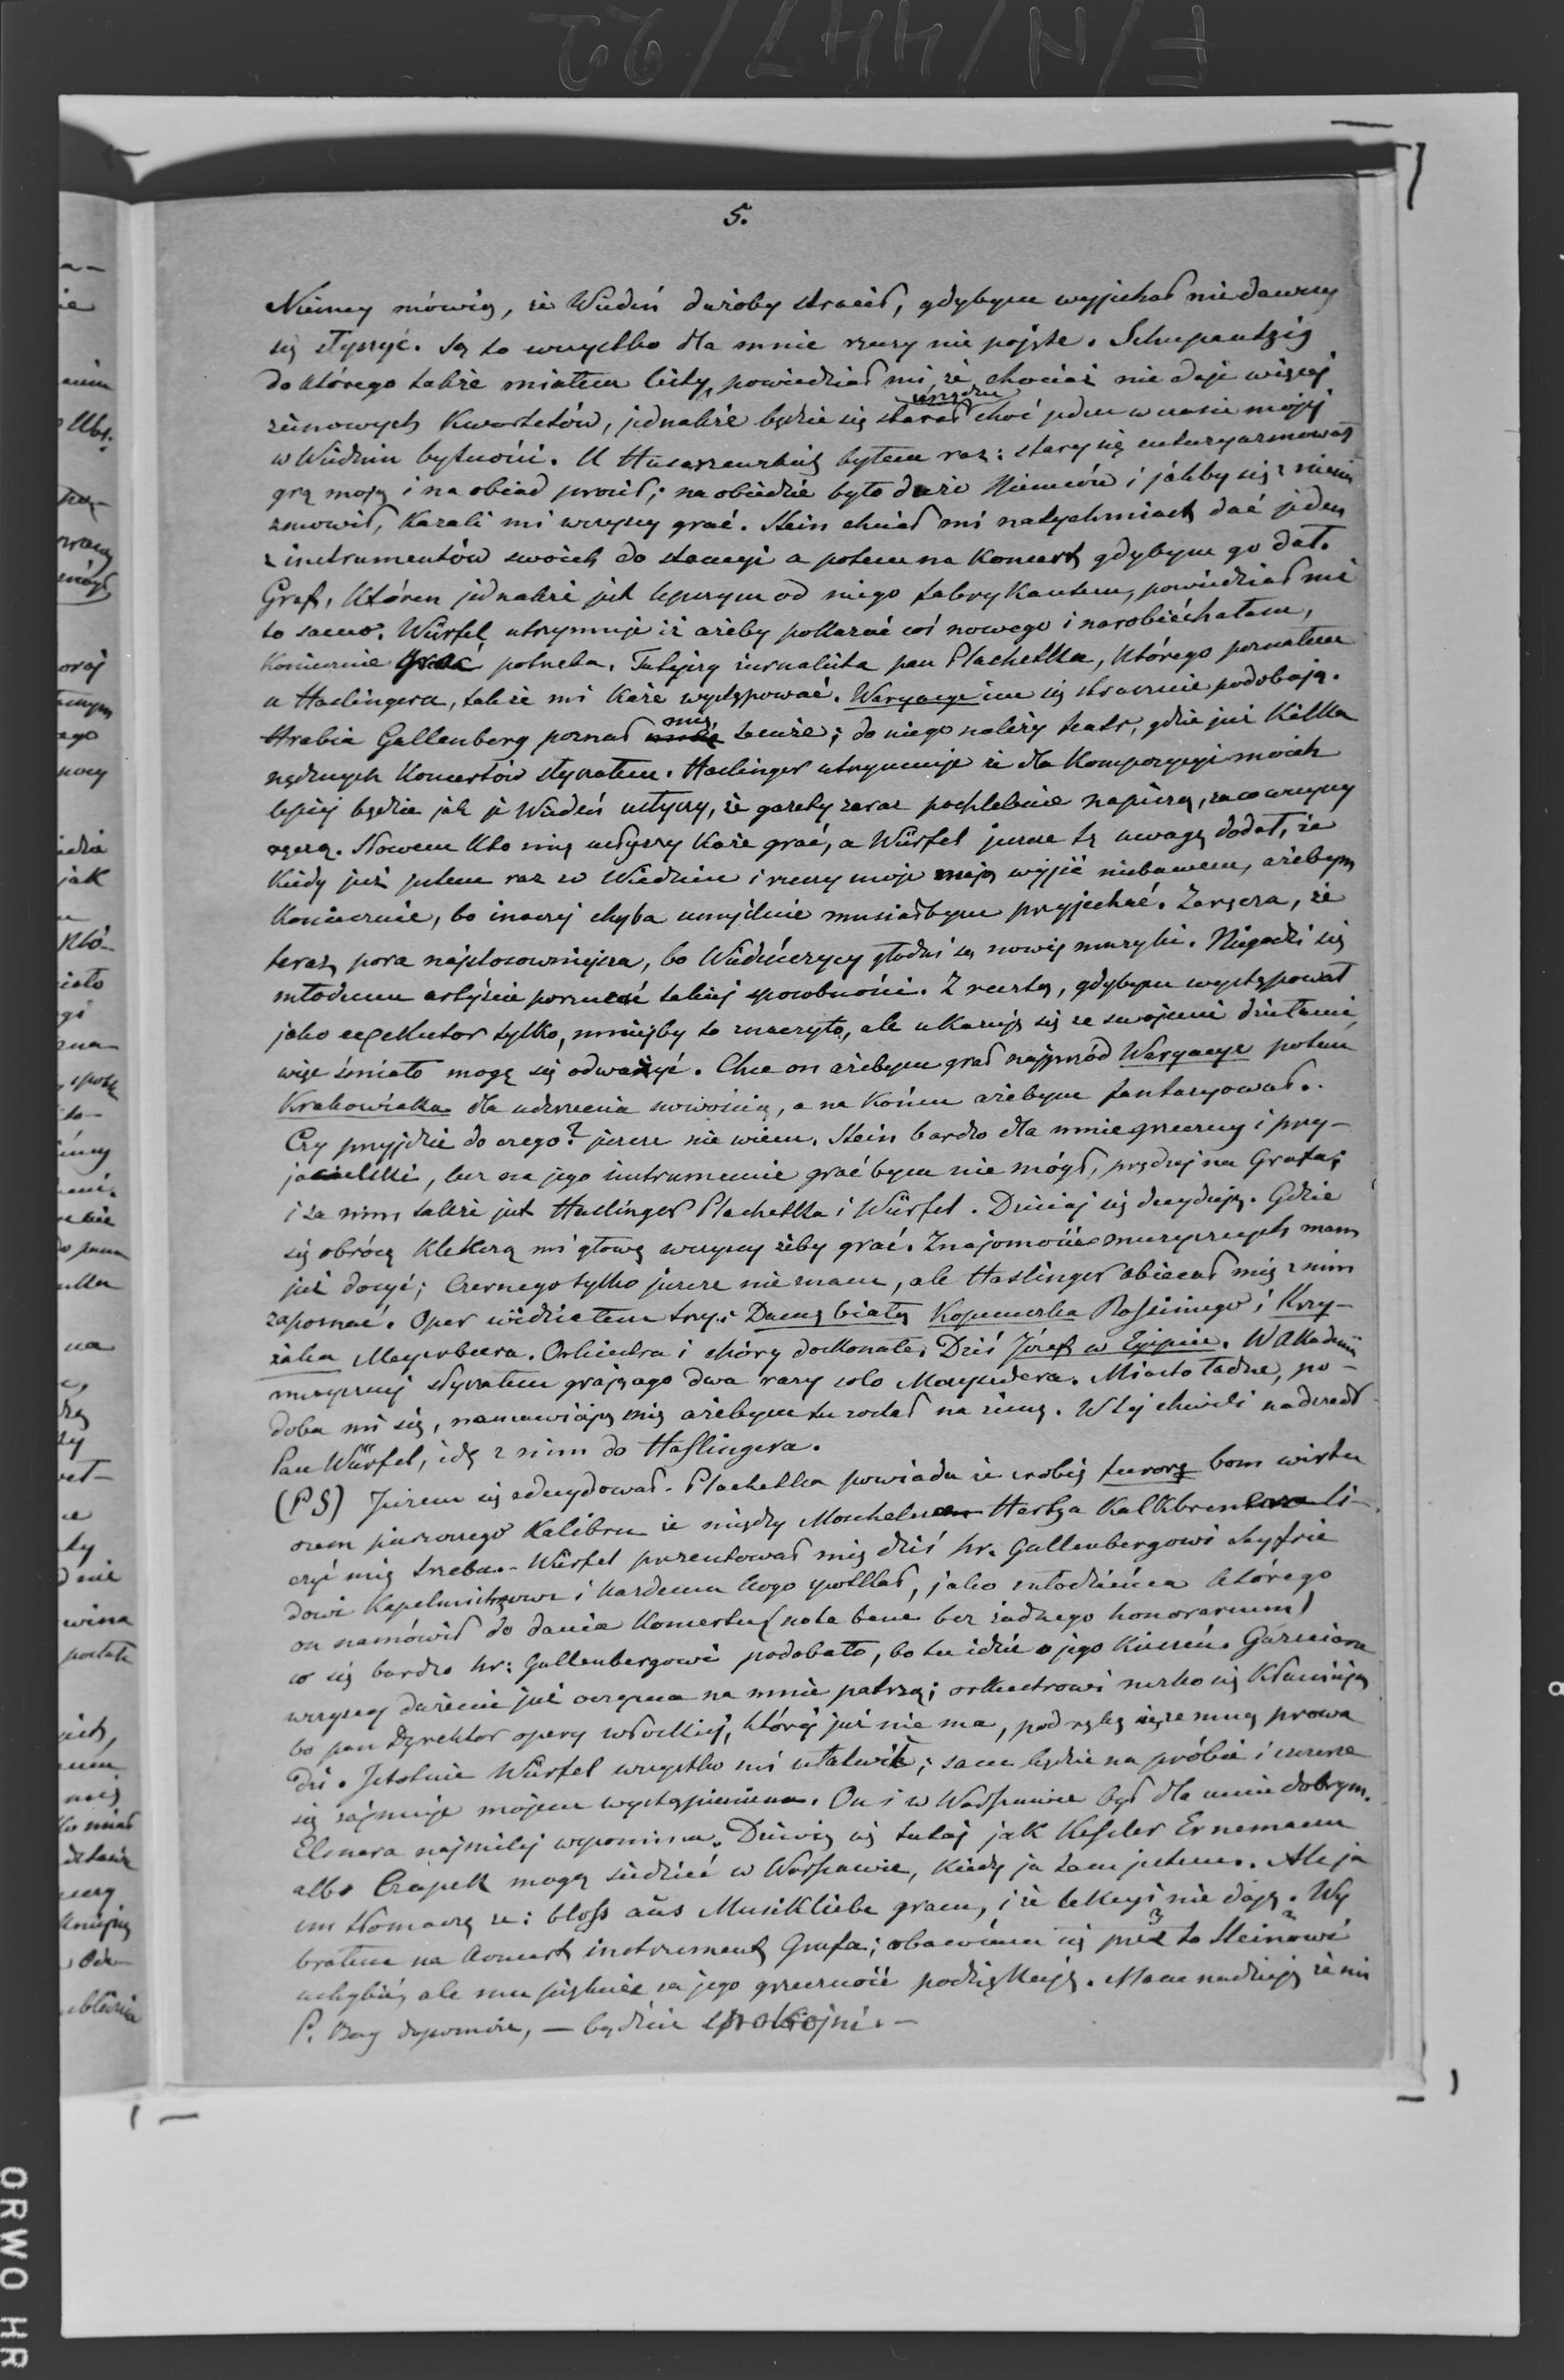 5.
Niemcy mówią, że Wiedeń dużoby stracił, gdybym wyjechał nie dawszy
się słyszyć. Są to wszystko dla mnie rzeczy nie pojęte. Schupantzig
do którego także miałem listy, powiedział mi, że chociaż nie daje więcej
zimowych Kwartetów, jednakże będzie się starał urządzić choć jeden w czasie mojej
w Wiedniu bytności. U Husarzewskich byłem raz: stary się entuzyazmował
grą moją i na obiad prosił; na obiedzie było dużo Niemców i jakby się z niemi
zmowił, Kazali mi wszyscy grać. Stein chciał mi natychmiast dać jeden
z instrumentów swoich do stancyi a potem na Koncert gdybym go dał.
Graf, Któren jednakże jest lepszym od niego fabrykantem, powiedział mi
to samo. Würfel utrzymuje iż ażeby pokazać coś nowego i narobić hałasu,
Koniecznie grać potrzeba. Tutejszy żurnalista pan Blachetka, Którego poznałem
u Haslingera, także mi Każe występować. Waryacye im się strasznie podobają.
Hrabia Gallenberg poznał mię także; do niego należy teatr, gdzie już Kilka
nędznych Koncertów słyszałem. Haslinger utrzymuje że dla Kompozycyi moich
lepiej będzie jak je Wiedeń usłyszy, że gazety zaraz pochlebnie napiszą, za co wszyscy
ręczą. Słowem Kto mię usłyszy Każe grać, a Würfel jeszcze tę uwagę dodał, że
Kiedy już jestem raz w Wiedniu i rzeczy moje mają wyjść niebawem, ażebym
Koniecznie, bo inaczej chyba umyślnie musiałbym przyjechać. Zaręcza, że
teraz pora najstosowniejsza, bo Wiedeńczycy głodni są nowej muzyki. Niegodzi się
młodemu artyście porzucać takiej sposobności. Zresztą, gdybym występował
jako exekutor tylko, mniejby to znaczyło, ale ukazuję się ze swojemi dziełami
więc śmiało mogę się odważyć. Chce on ażebym grał najprzód Waryacye potem
Krakowiaka dla uderzenia nowością, a na Końcu ażebym fantazyował.
Czy przyjdzie do czego? jeszcze nie wiem. Stein bardzo dla mnie grzeczny i przy-
jacielski, lecz na jego instrumencie grać bym nie mógł, prędzej na Grafa;
i za nim także jest Haslinger Blachetka i Würfel. Dzisiaj się decydują. Gdzie
się obrócę Klekczą mi głowę wszyscy żeby grać. Znajomości muzycznych mam
już dosyć; Czernego tylko jeszcze nie znam, ale Haslinger obiecał mię z nim
zapoznać. Oper widziałem trzy: Damę białą Kopciuszka Rossiniego i Krzy-
żaka Meyerbeera. Orkiestra i chóry doskonałe. Dziś Józef w Egipcie. W Akademii
muzycznej słyszałem grającego dwa razy solo Maysedera. Miasto ładne, po-
doba mi się, namawiają mię ażebym tu został na zimę. W tej chwili nadszedł
Pan Würfel, idę z nim do Haslingera.
(PS) Jużem się zdecydował. Blachetka powiada że zrobię furorę bom wirtu
ozem pierwszego Kalibru że między Moschelesem Hertza Kalkbrennera li-
czyć mię trzeba. Würfel prezentował mię dziś hr. Gallenbergowi Seyfrie
dowi Kapelmistrzowi i każdemu kogo spotkał, jako młodzieńca Którego
on namówił do dania Koncertu (nota bene bez żadnego honorarium)
co się bardzo hr: Gallenbergowi podobało, bo tu idzie o jego Kieszeń. Gazeciarze
wszyscy dużemi już oczyma na mnie patrzą; orkiestrowi nisko się Kłaniają
bo pan Dyrektor opery włoskiej, której już nie ma, pod rękę się ze mną prowa
dzi. Istotnie Würfel wszystko mi ułatwił; sam będzie na próbie i szczerze
się zajmuje mojem wystąpieniem. On i w Warszawie był dla mnie dobrym.
Elsnera najmilej wspomina. Dziwią się tutaj jak Kessler Ernemann
albo Czapek mogą siedzieć w Warszawie, Kiedy ja tam jestem. Ale ja
im tłomaczę że: bloss aus Musikliebe gram, i że lekcyi nie daję. Wy
brałem na koncert instrument Grafa; obawiam się przez to Steinowi
uchybić, ale mu pięknie za jego grzeczność podziękuję. Mam nadzieję że mi
P. Bóg dopomoże, — bądźcie spokojni. —
F/N/447/22
ORWO HR